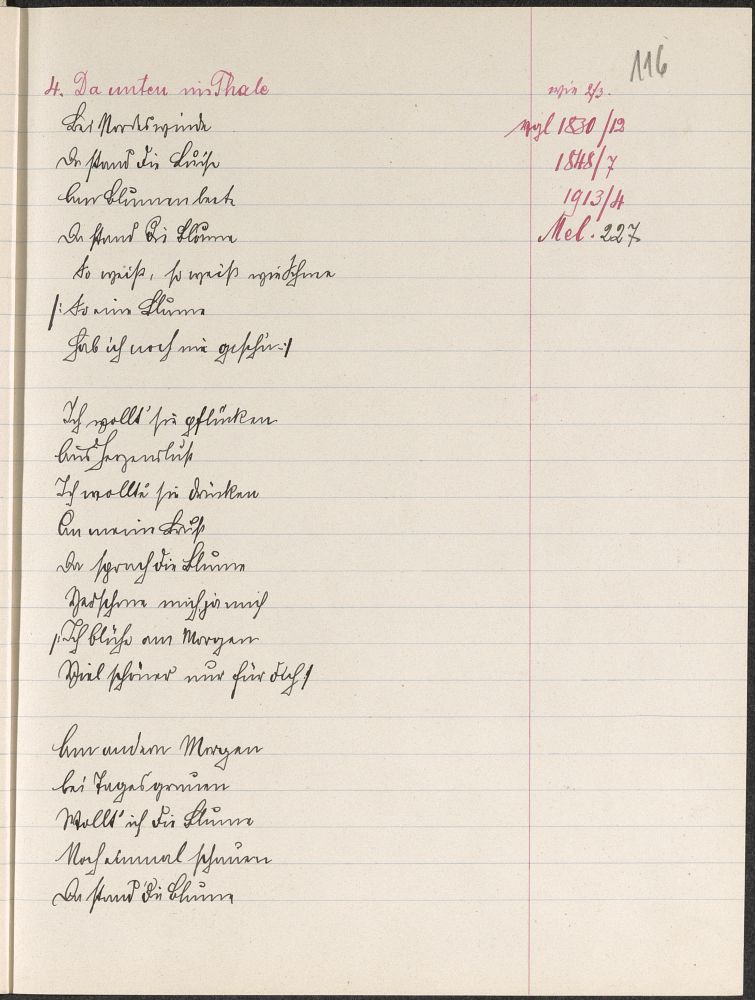 116
4. Da unten im Thale
wie 2/3.
Bei Nordeswinde
vgl 1830/12
Da stand die Luise
1848/7
Am Blumenbeete
1913/4
Da stand die Blume
Mel. 227
So weiß, so weiß wie Schnee
/: So eine Blume
Hab ich noch nie gesehn :/
Ich wollt' sie pflücken
Aus Herzenslust
Ich wollte sie drücken
An meine Brust
Da sprach die Blume
Verschone mich ja mich
/: Ich blühe am Morgen
Viel schöner nur für dich :/
Am andern Morgen
bei Tagesgrauen
Wollt' ich die Blume
Noch einmal schauen
Da stand die Blume